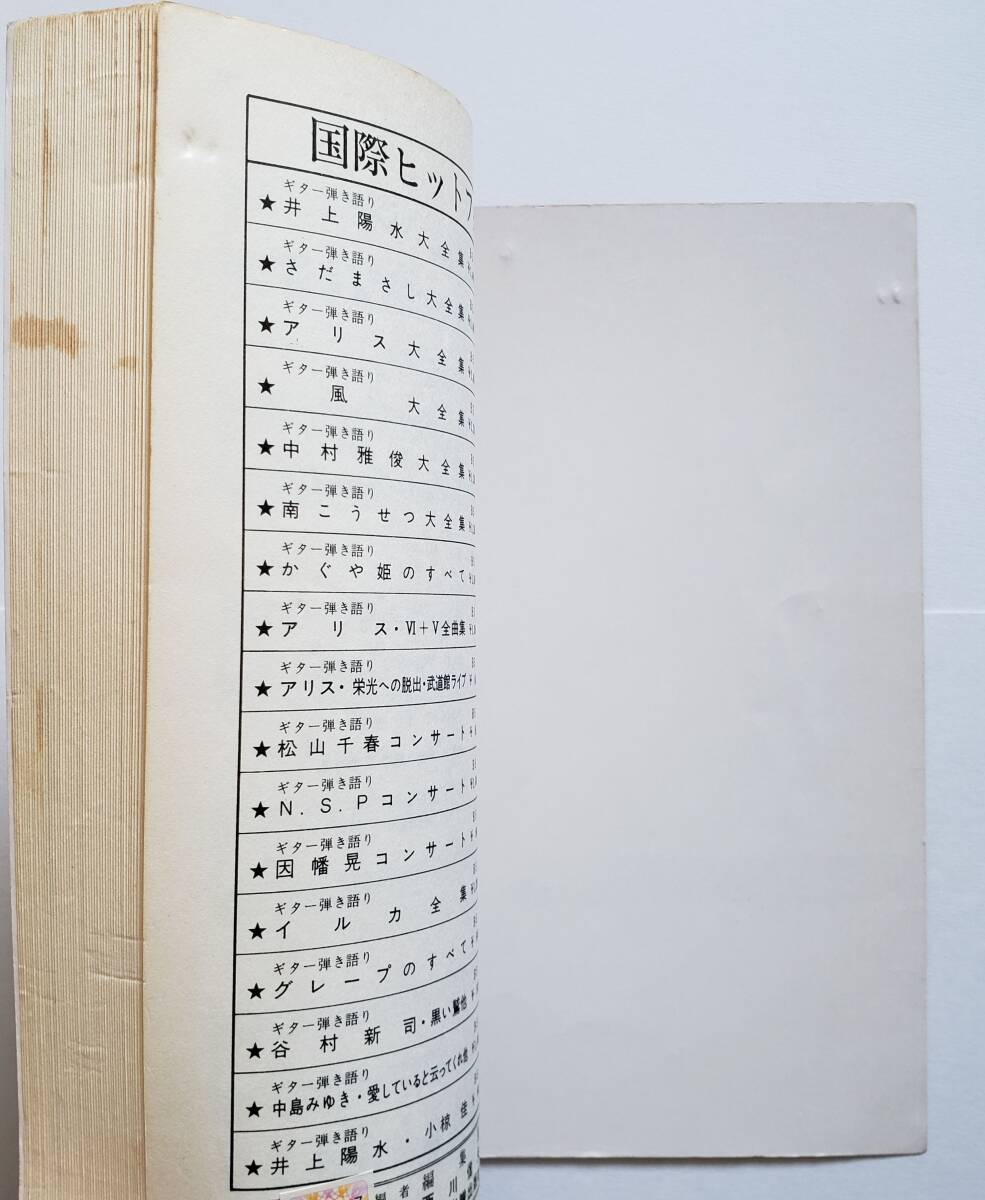 国際ヒット
ギター弾き語り
★井上陽水大全集
ギター弾き語り
★さだまさし大全集
ギター弾き語り
★アリス大全集
ギター弾き語り
★風 大全集
ギター弾き語り
★中村雅俊大全集
ギター弾き語り
★南こうせつ大全集
ギター弾き語り
★かぐや姫のすべて
ギター弾き語り
★アリス・Ⅵ+Ⅴ全曲集
ギター弾き語り
★アリス・栄光への脱出・武道館ライブ
ギター弾き語り
★松山千春コンサート
ギター弾き語り
★N.S.Pコンサート
ギター弾き語り
★因幡晃コンサート
ギター弾き語り
★イルカ全集
ギター弾き語り
★グレープのすべて
ギター弾き語り
★谷村新司・黒い鷲他
ギター弾き語り
★中島みゆき・愛していると云ってくれ他
ギター弾き語り
★井上陽水・小椋佳
編集
者